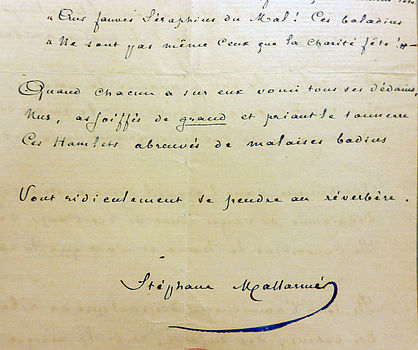 " Ces fauves Séraphins du Mal! Ces baladins
" Ne sont pas même ceux que la charité fête! "
Quand chacun a sur eux vomi tous ses dédains,
Nus, assoiffés de grand et priant le tonnerre
Ces Hamlets abreuvés de malaises badins
Vont ridiculement se pendre au réverbère.
Stéphane Mallarmé